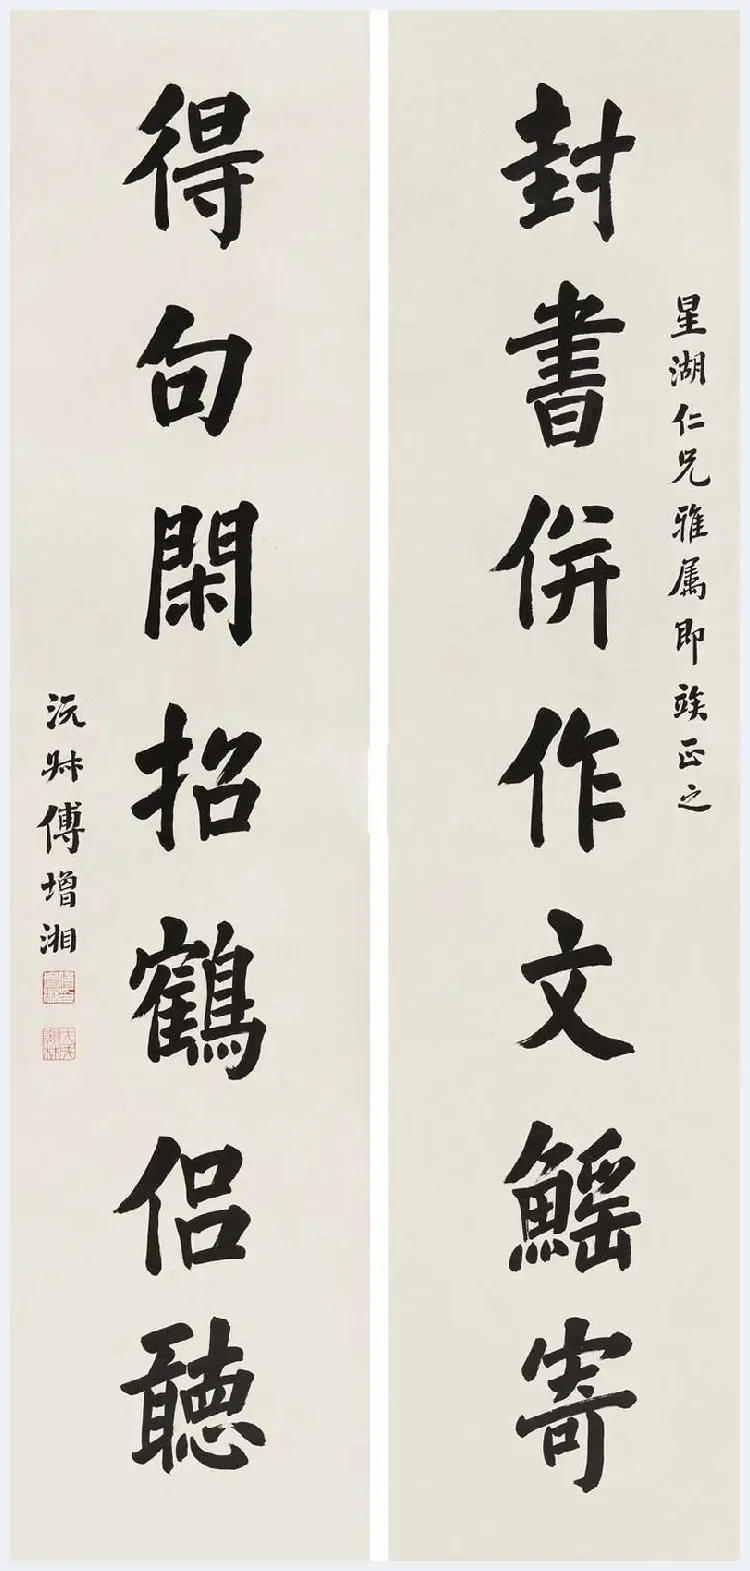 星湖仁兄雅属即竢正之
封書併作文鰩寄
得句閑招鶴侶聽
沅叔傅增湘